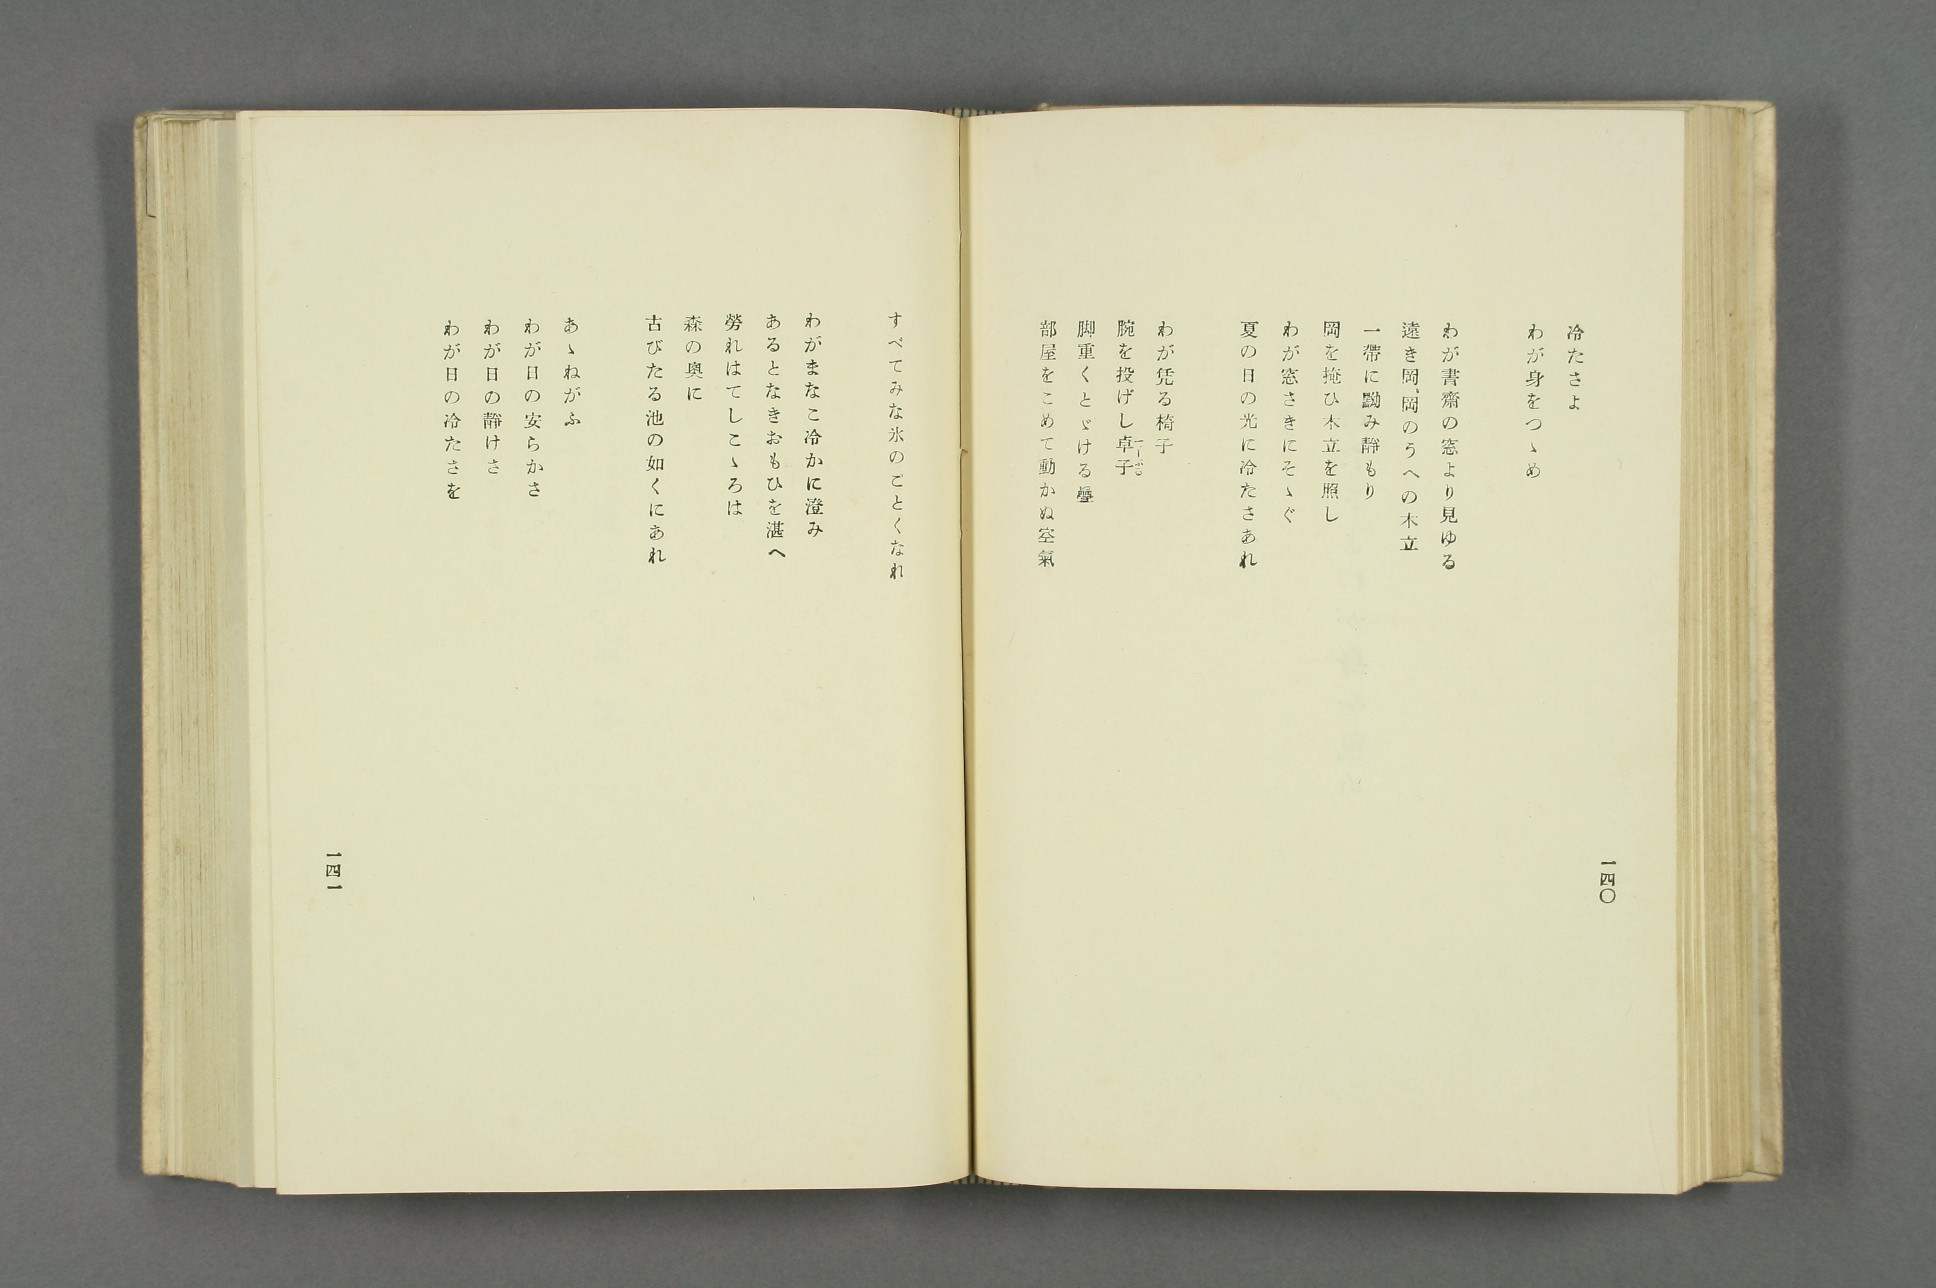 冷たさよ
わが身をつゝめ
わが書齋の窓より見ゆる
遠き岡、岡のうへの木立
一帶に黝み靜もり
岡を掩ひ木立を照し
わが窓さきにそゝぐ
夏の日の光に冷たさあれ
わが凭る椅子
腕を投げし卓子
脚重くとゞける疊
部屋をこめて動かぬ空氣
一四〇
すべてみな氷のごとくなれ
わがまなこ冷かに澄み
あるとなきおもひを湛へ
勞れはてしこゝろは
森の奧に
古びたる池の如くにあれ
あゝねがふ
わが日の安らかさ
わが日の靜けさ
わが日の冷たさを
一四一